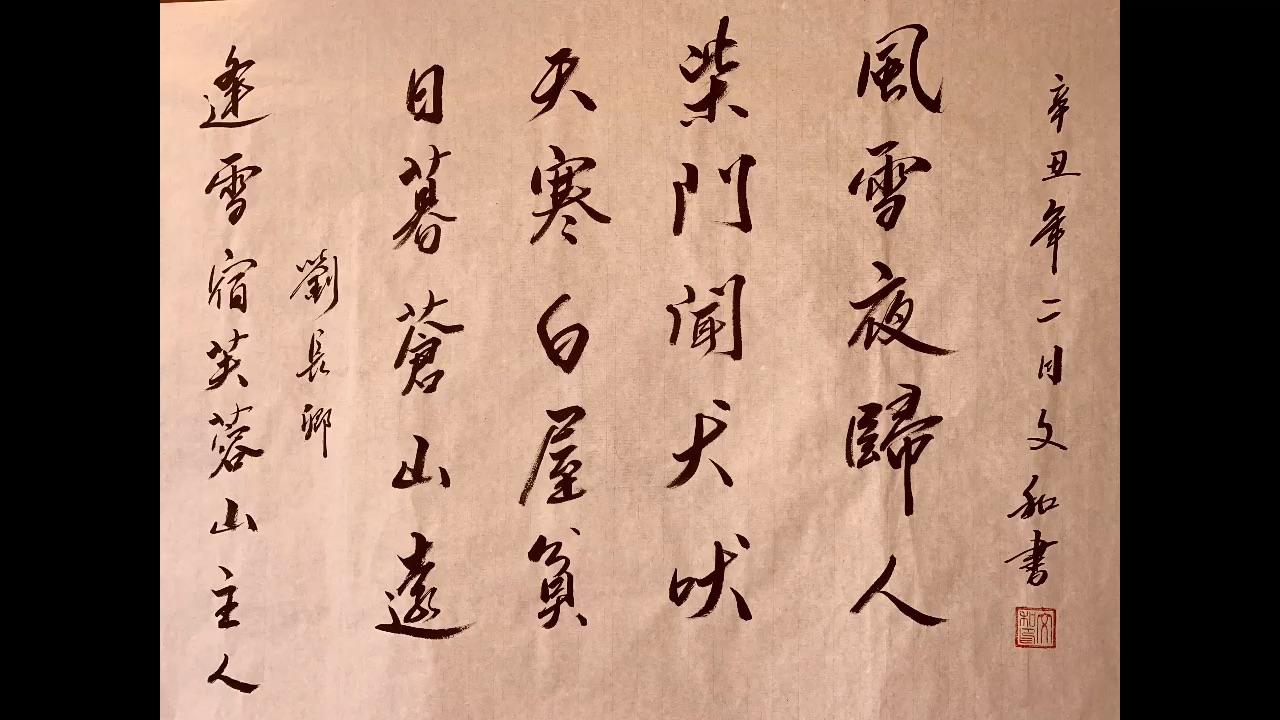 逢雪宿芙蓉山主人
劉長卿
日暮蒼山遠
天寒白屋貧
柴門聞犬吠
風雪夜歸人
辛丑年二月文和書